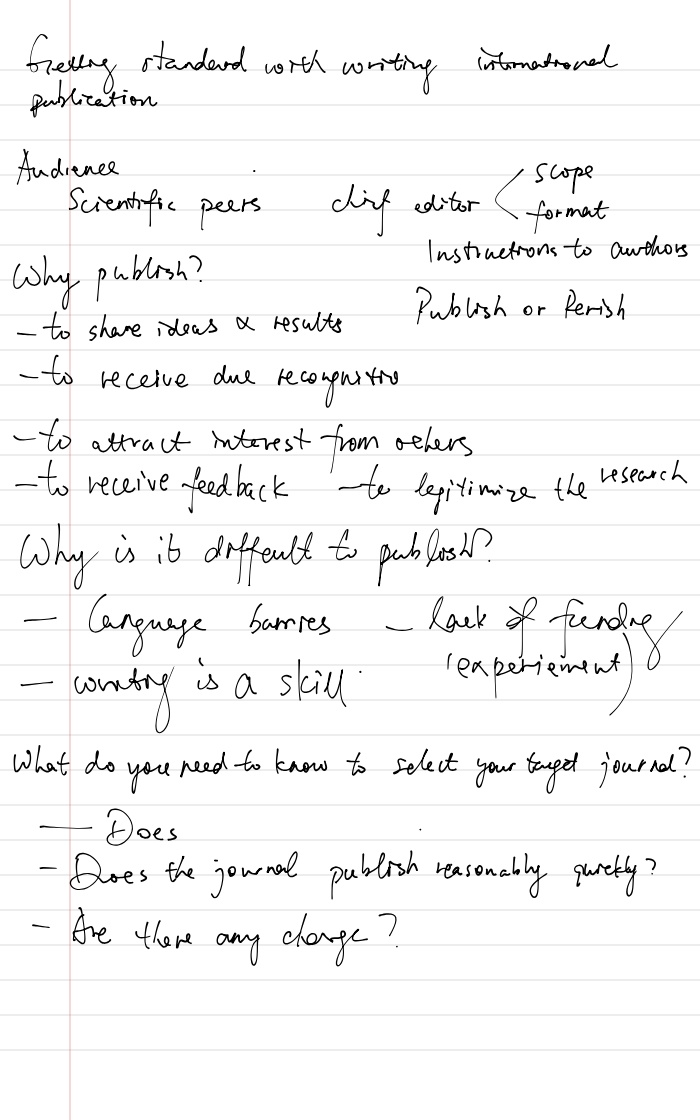 Getting standard with writing international
publication
Audience
Scientific peers chief editor
scope
format
Instructions to authors
Why publish?
Publish or Perish
- to share ideas & results
- to receive due recognitio
- to attract interest from others
- to receive feedback - to legitimize the research
Why is it difficult to publish?
- Language barries - lack of funding
(experiement)
- writing is a skill
What do you need to know to select your target journal?
- Does
- Does the journal publish reasonably quickly?
- Are there any charge?